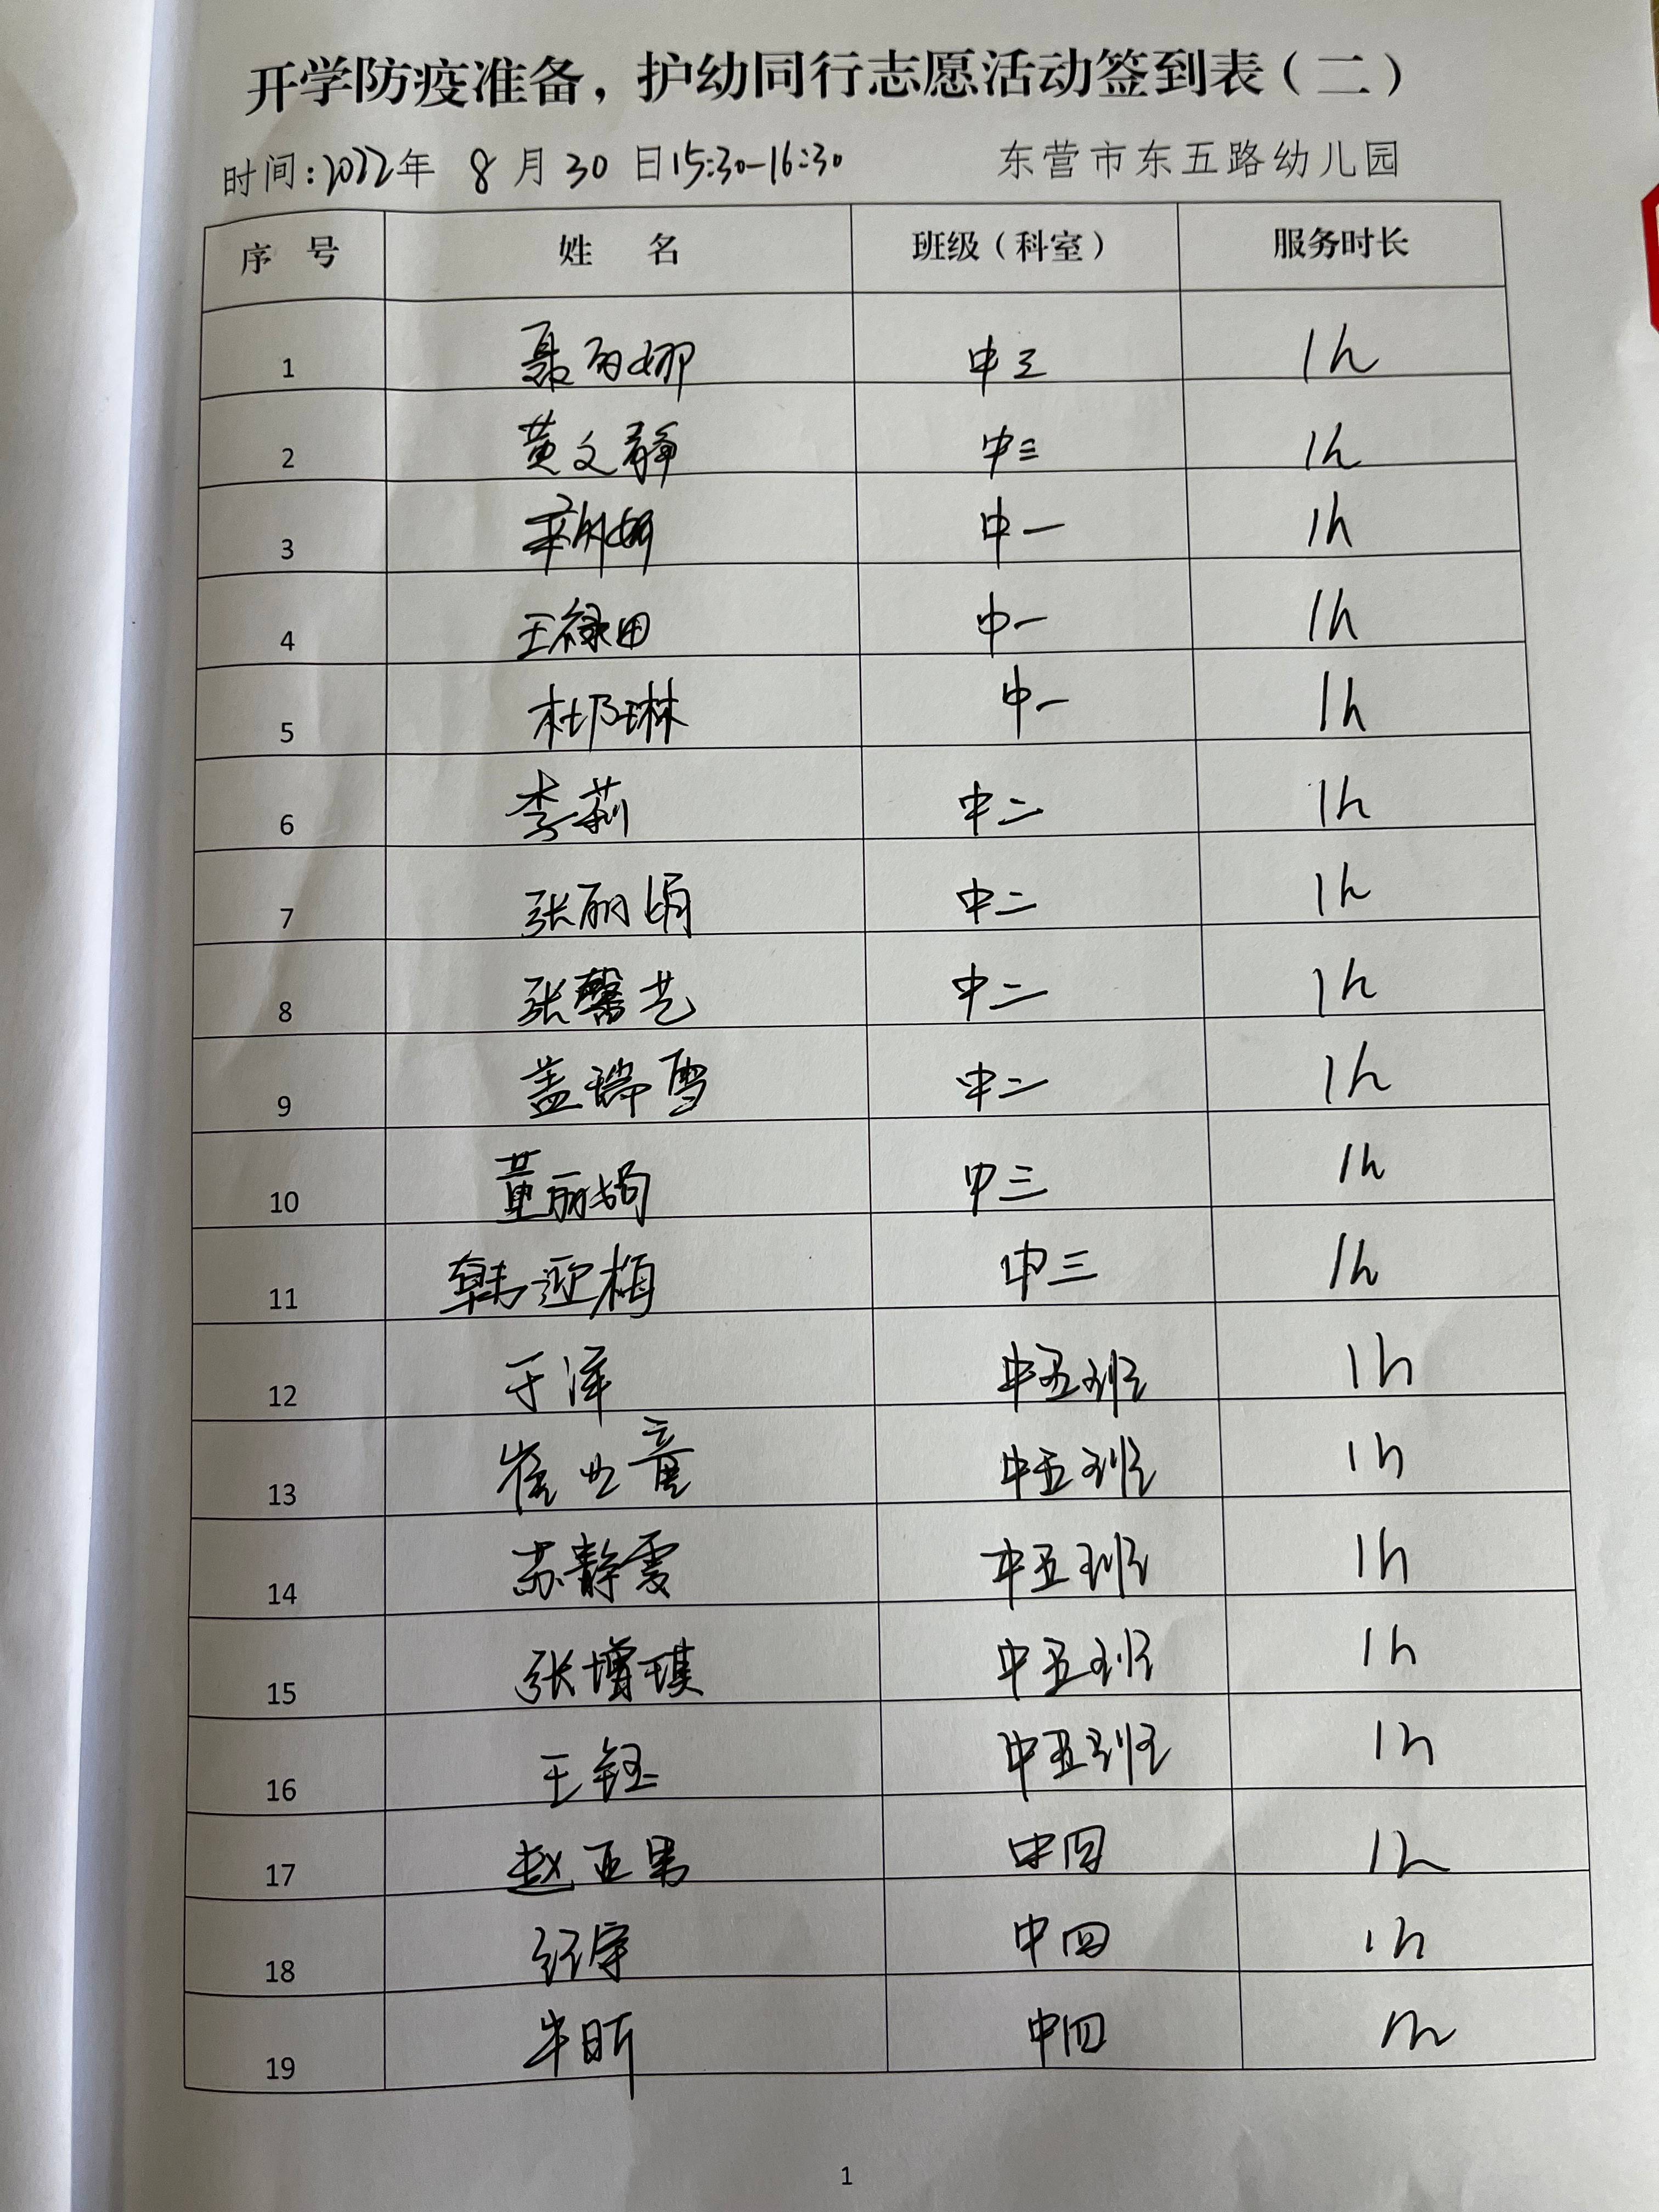 开学防疫准备，护幼同行志愿活动签到表（二）
时间：2022年 8 月 30 日15:30-16:30 东营市东五路幼儿园
序 号 姓 名 班级（科室） 服务时长
1 聂丽娜 中三 1h
2 黄文静 中三 1h
3 中一 1h
4 王禄田 中一 1h
5 杜乃琳 中一 1h
6 李莉 中二 1h
7 张丽娟 中二 1h
8 张馨艺 中二 1h
9 盖瑞雪 中二 1h
10 董丽娟 中三 1h
11 韩迎梅 中三 1h
12 于洋 中五班 1h
13 崔世童 中五班 1h
14 苏静雯 中五班 1h
15 张增琪 中五班 1h
16 王钰 中五班 1h
17 赵亚男 中四 1h
18 中四 1h
19 牛昕 中四 1h
1